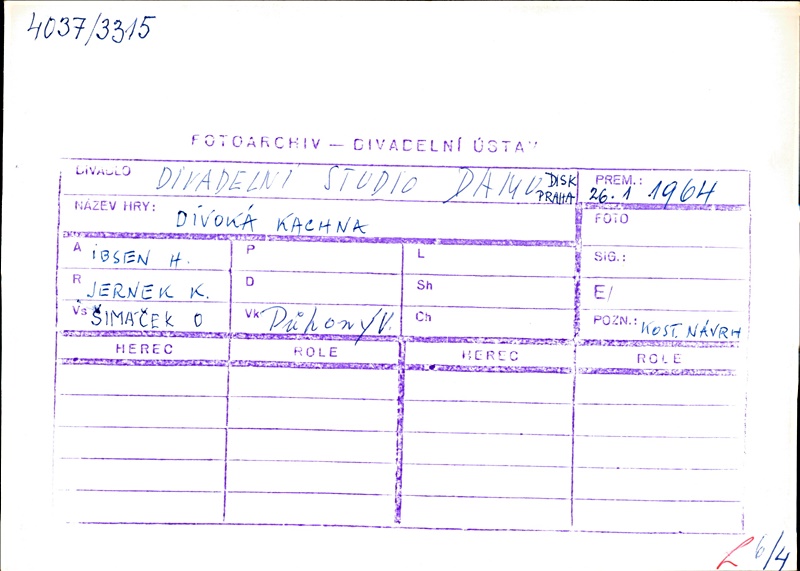 4037/3315
FOTOARCHIV — DIVADELNÍ ÚSTAV
DIVADLO DIVADELNÍ STUDIO DAMU DISK PRAHA
PREM.: 26.1 1964
NÁZEV HRY: DIVOKÁ KACHNA
FOTO
A IBSEN H.
P
L
SIG.:
R JERNEK K.
D
Sh
E/
Vs ŠIMAČEK O
Vk Důhoný V.
Ch
POZN.: KOST. NÁVRH
HEREC ROLE HEREC ROLE
6/4